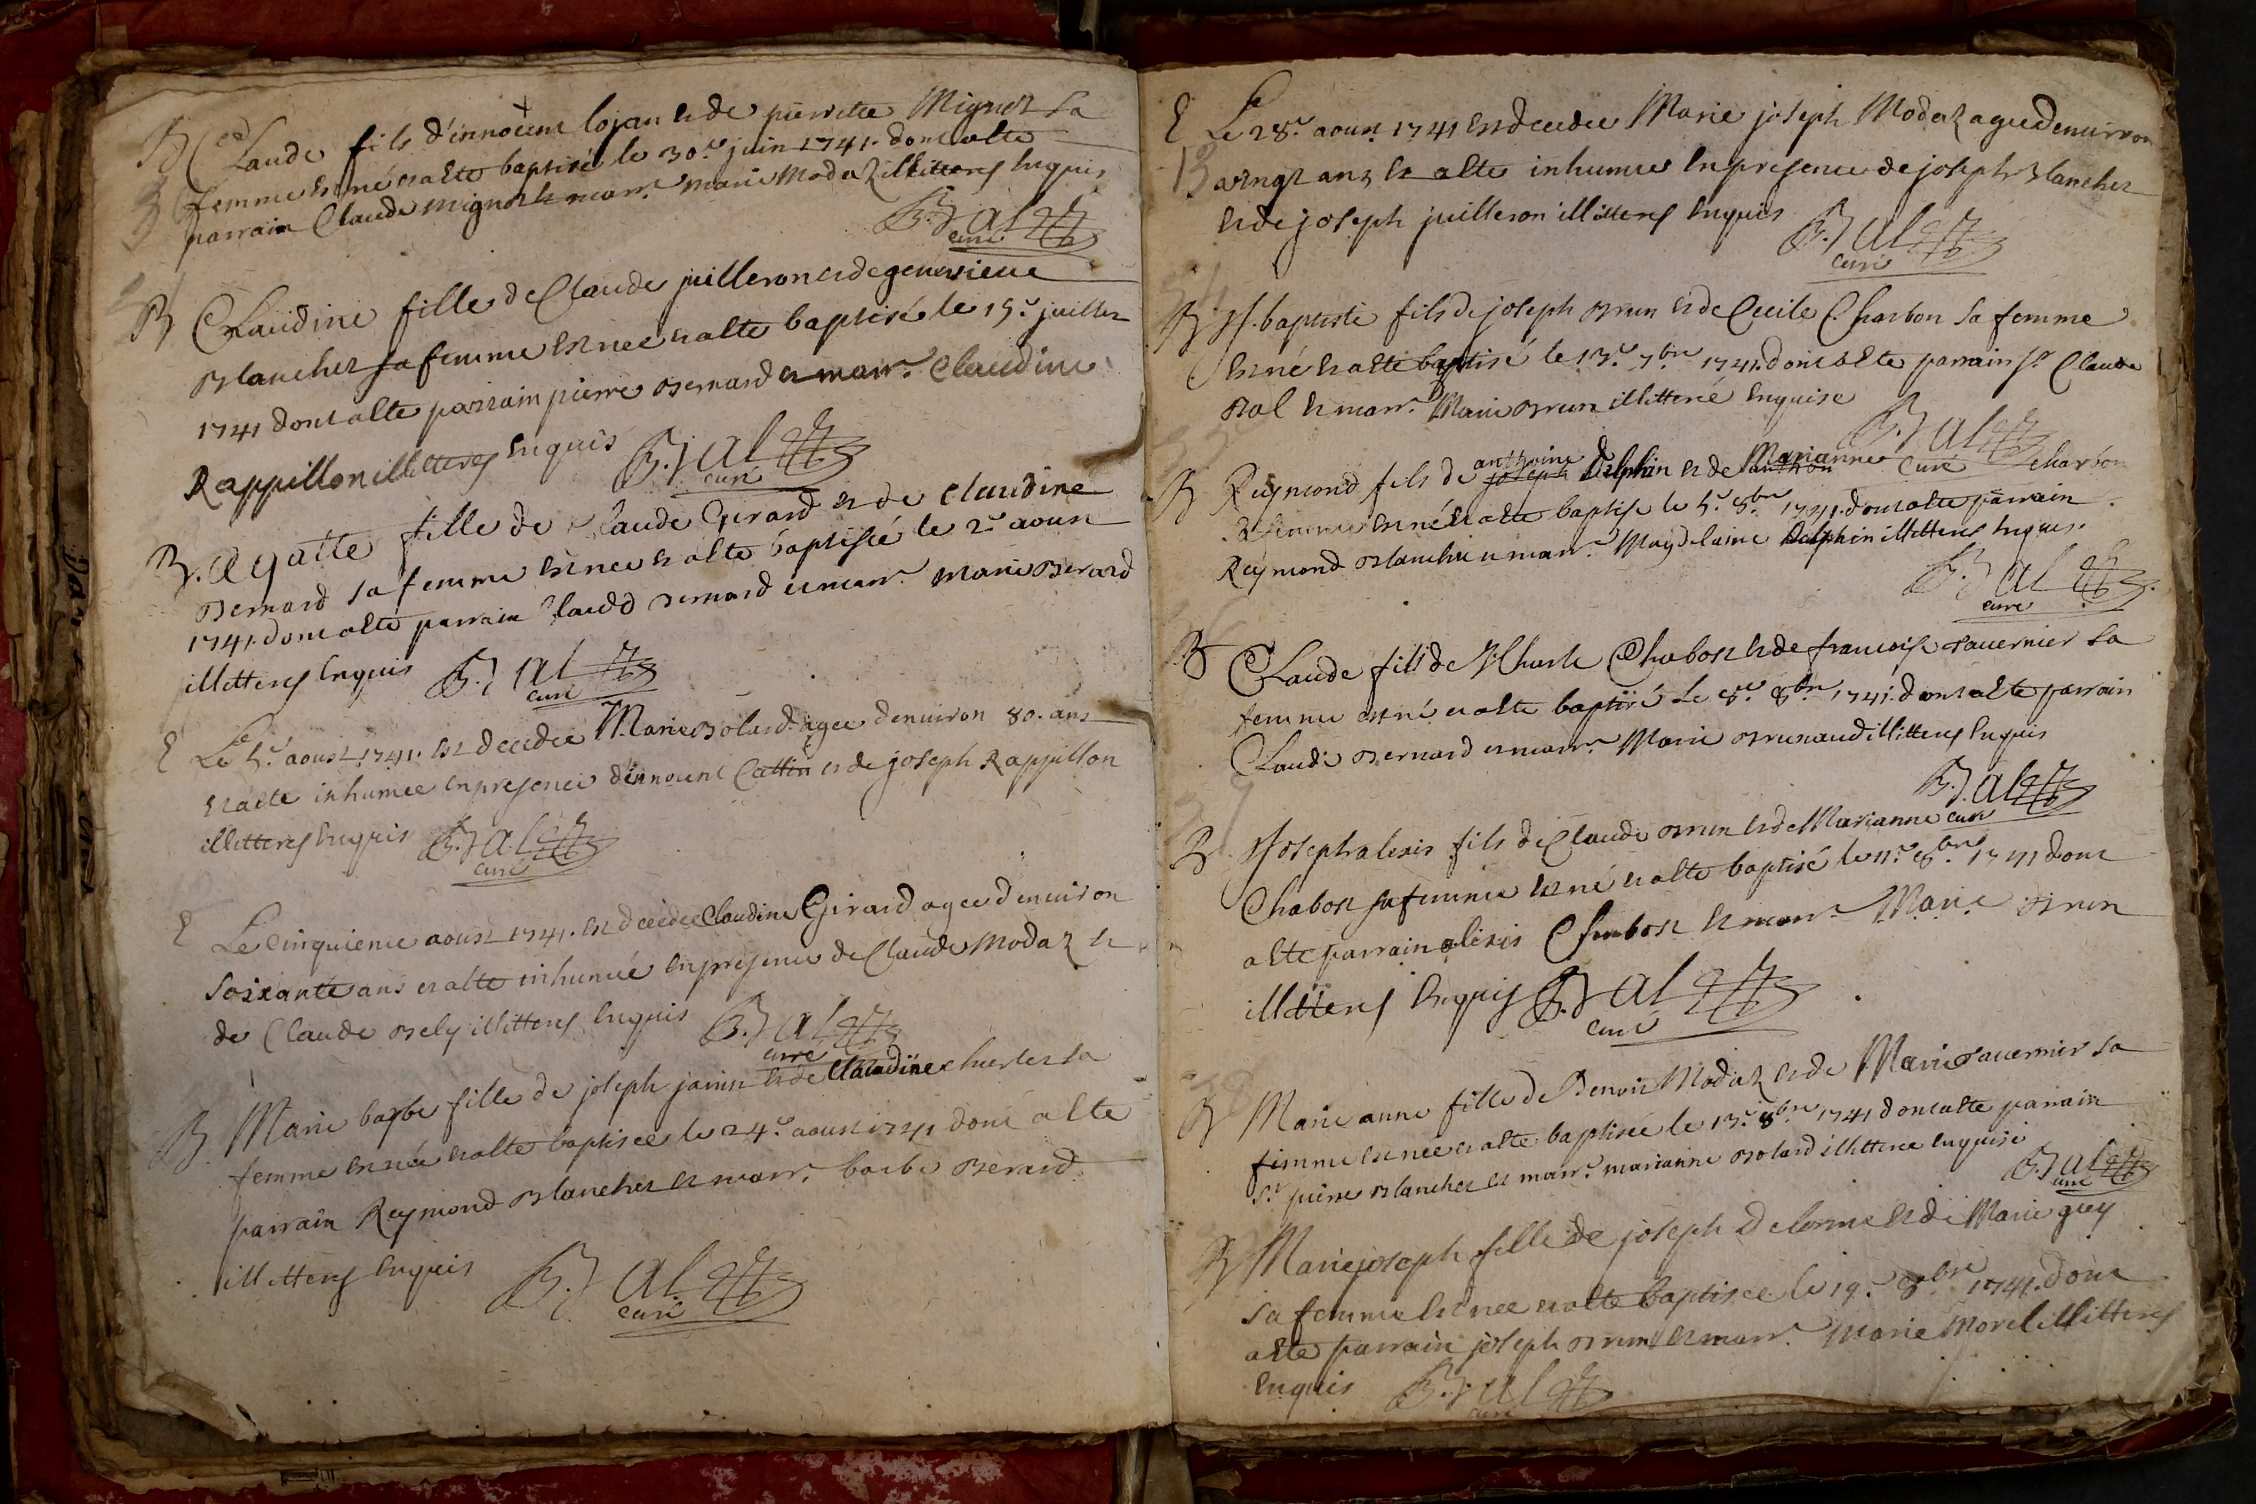 B Claude fils d'innocent lojan et de pierrette Mignot sa
femme est né et a ete baptisé le 30.e juin 1741. dont a ete
parrain Claude mignot et marr.e marie Modaz illitteres enquis
B. j al
curé
B Claudine fille de Claude juilleron et de genevieve
Blanchet sa femme est née et a ete baptisé le 15.e juillet
1741 dont a ete parrain pierre Bernard et marr.e Claudine
Rappillon illitteres enquis B. j al
curé
B. agatte fille de Claude Girard et de Claudine
Bernard sa femme est nee et a ete baptisée le 2.e aoust
1741. dont a ete parrain Claude Bernard et marr.e marie Berard
illitteres enquis B. j al
curé
E Le 5.e aoust 1741. est decedee Marie Bolard agee denviron 80. ans
et a ete inhumee en presence d'innocent Cattin et de joseph Rappillon
illitteres enquis B. j al
curé
E Le Cinquieme aoust 1741. est decedee Claudine Girard agee denviron
soixante ans et a ete inhumée en presence de Claude Modaz et
de Claude Bely illitteres enquis B. j al
curé
B Marie barbe fille de joseph janin et de Claudine charles sa
femme est née et a ete baptisee le 24.e aoust 1741 dont a ete
parrain Reymond Blanchet et marr.e barbe Berard
illitteres enquis B. j al
curé
E Le 28.e aoust 1741 est decedee Marie joseph Modaz agee denviron
vingt ans et a ete inhumee en presence de joseph Blanchet
et de joseph juilleron illitteres enquis B. j al
curé
B J. baptiste fils de joseph Brun et de Cecile Charbon sa femme
est né et a ete baptisé le 13.e 7bre 1741. dont a ete parrain Sr Claude
Bal et marr.e Marie Brun illitteré enquise B. j al
curé
B Reymond fils de joseph anthoine Delphin et de Marianne charbon
sa femme est né et a ete baptisé le 5.e 8bre 1741. dont a ete parrain
Reymond Blanchet et marr.e Magdelaine Dalphin illitteres enquis.
B. j al
curé
B Claude fils de J. Charle Chabost et de francoise Tavernier sa
femme est né et a ete baptisé Le 8.e 8bre 1741. dont a ete parrain
Claude Bernard et marr.e Marie Brunaud illitteres enquis
B. j. al
curé
B Joseph alexis fils de Claude Brun et de Marianne
Chabost sa femme est né et a ete baptisé le 11.e 8bre 1741 dont
a ete parrain alexis Chabost et marr.e Marie Brun
illitteres enquis B. j al
curé
B Marie anne fille de Benoit Modaz et de Marie Tavernier sa
femme est née et a ete baptisée le 13.e 8bre 1741 dont a ete parrain
Sr. pierre Blanchet et marr.e marianne Bolard illitteree enquise
B. j al
curé
B Marie joseph fille de joseph Delorme et de Marie guy
sa femme est nee et a ete baptisee le 19.e 8bre 1741. dont
a ete parrain joseph Brun et marr.e Marie Morel illitteres
enquis B. j al
curé